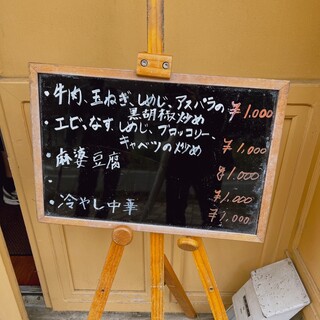 ・牛肉、玉ねぎ、しめじ、アスパラの
黒胡椒炒め ¥1.000
・エビ、なす、しめじ、ブロッコリー、
キャベツの炒め ¥1,000
・麻婆豆腐 ¥1.000
・ ¥1.000
・冷やし中華 ¥1,000